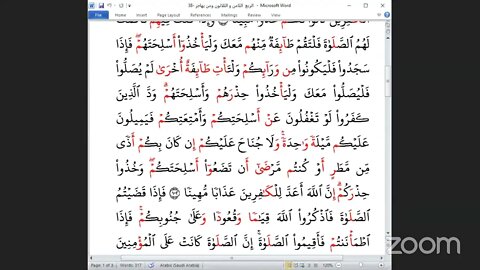 الربع الثامن و الثلاثون ومن يهاجر -38 - Microsoft Word
Home Insert Page Layout References Mailings Review View
لَهُمُ ٱلصَّلَوٰةَ فَلْتَقُمْ طَآئِفَةٌ مِّنْهُم مَّعَكَ وَلْيَأْخُذُوٓا۟ أَسْلِحَتَهُمْ فَإِذَا
سَجَدُوا۟ فَلْيَكُونُوا۟ مِن وَرَآئِكُمْ وَلْتَأْتِ طَآئِفَةٌ أُخْرَىٰ لَمْ يُصَلُّوا۟
فَلْيُصَلُّوا۟ مَعَكَ وَلْيَأْخُذُوا۟ حِذْرَهُمْ وَأَسْلِحَتَهُمْ وَدَّ ٱلَّذِينَ
كَفَرُوا۟ لَوْ تَغْفُلُونَ عَنْ أَسْلِحَتِكُمْ وَأَمْتِعَتِكُمْ فَيَمِيلُونَ
عَلَيْكُم مَّيْلَةً وَٰحِدَةً وَلَا جُنَاحَ عَلَيْكُمْ إِن كَانَ بِكُمْ أَذًى
مِّن مَّطَرٍ أَوْ كُنتُم مَّرْضَىٰٓ أَن تَضَعُوٓا۟ أَسْلِحَتَكُمْ وَخُذُوا۟
حِذْرَكُمْ إِنَّ ٱللَّهَ أَعَدَّ لِلْكَٰفِرِينَ عَذَابًا مُّهِينًا ١٠٢ فَإِذَا قَضَيْتُمُ
ٱلصَّلَوٰةَ فَٱذْكُرُوا۟ ٱللَّهَ قِيَٰمًا وَقُعُودًا وَعَلَىٰ جُنُوبِكُمْ فَإِذَا
ٱطْمَأْنَنتُمْ فَأَقِيمُوا۟ ٱلصَّلَوٰةَ إِنَّ ٱلصَّلَوٰةَ كَانَتْ عَلَى ٱلْمُؤْمِنِينَ
zoom
Words: 317 Arabic (Saudi Arabia) 120%